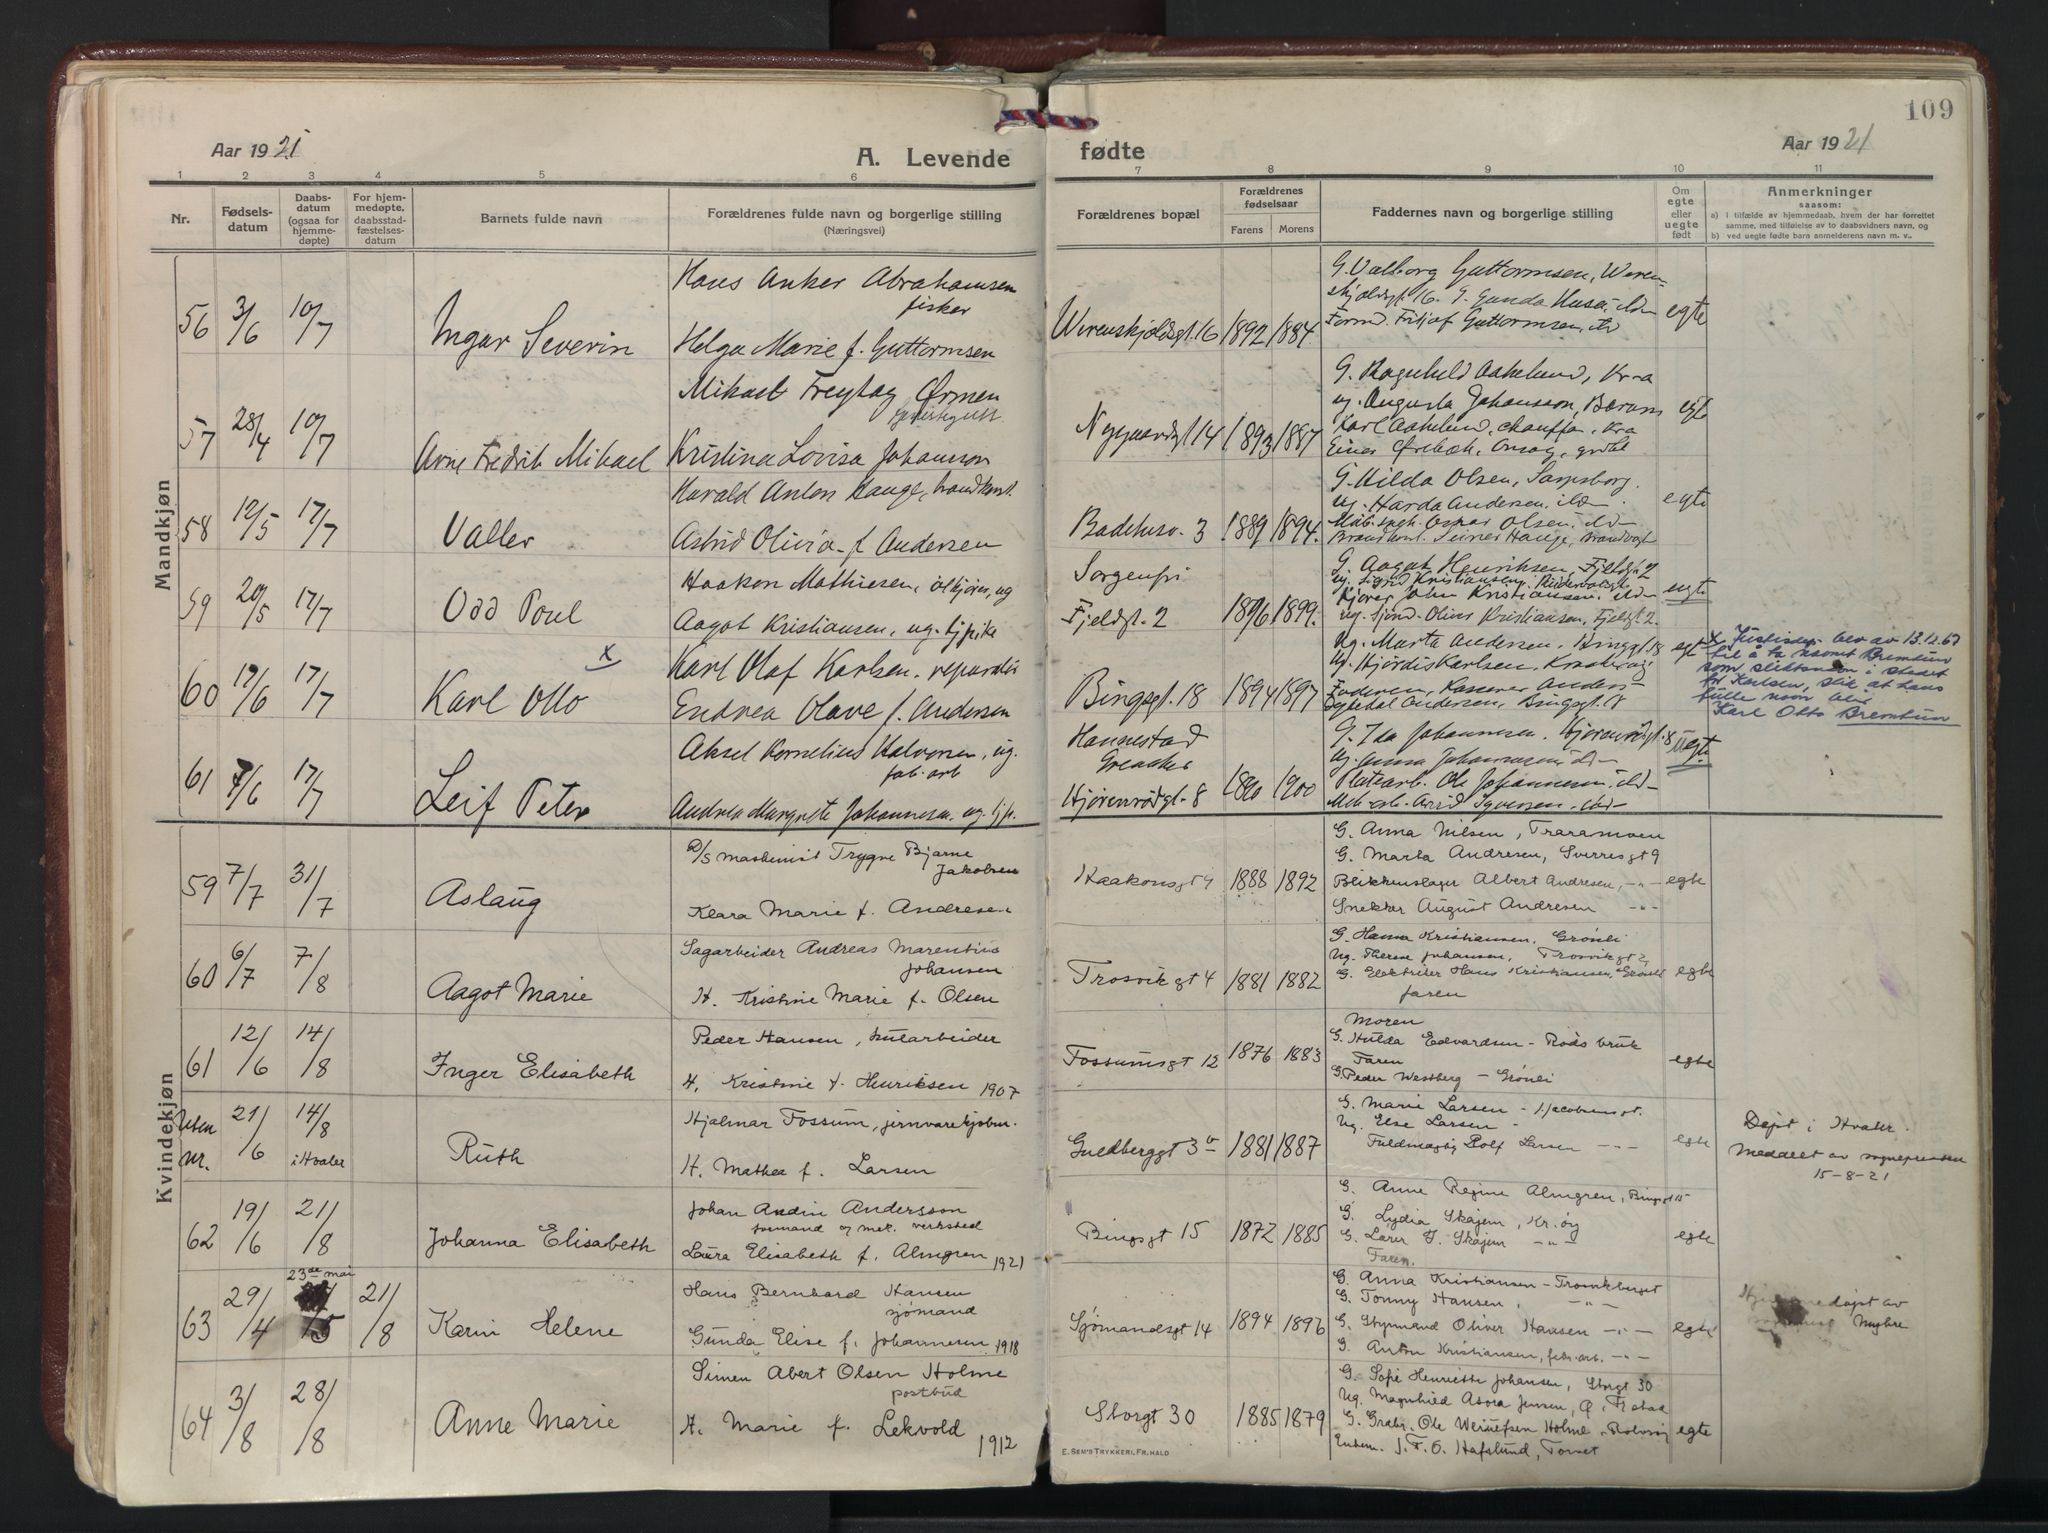 109
Aar 1921
A. Levende
fødte
Aar 1921
1 2 3 4 5 6 7 8 9 10 11
Nr.
Fødsels-
datum
Daabs-
datum
(ogsaa for
hjemme-
døpte)
For hjem-
medøpte,
daabsstad-
fæstelses-
datum
Barnets fulde navn
Forældrenes fulde navn og borgerlige stilling
(Næringsvei)
Forældrenes bopæl
Forældrenes
fødselsaar
Farens Morens
Faddernes navn og borgerlige stilling
Om
egte
eller
uegte
født
Anmerkninger
saasom:
a) I tilfælde av hjemmedaab, hvem der har forrettet
samme, med tilføielse av to daabsvidners navn, og
b) ved uegte fødte barn anmelderens navn m. v..
Mandkjøn
56 3/6 10/7 Ingar Severin
Hans Anker Abrahamsen
fisker
Helga Marie f. Guttormsen
Werenskjoldsgt. 16 1892 1884
G. Valborg Guttormsen, Weren-
skjoldsgt 16. G. Gunda Huser
Fritjof Guttormsen
egte
57 28/4 10/7 Arne Fredrik Mikael
Mikael Freytag Ørmen
Kristina Lovisa Johanson
Nygaardsgt 14 1893 1887
G. Ragnhild Aakelund, Kra
ug. Augusta Johansson, Bærum
Karl Aakelund, chauffør, Kra
Einar Ørebæk, Onsøy
egte
58 12/5 17/7 Valler
Harald Anton Hauge, brandkonst.
Astrid Olivia f. Andersen
Badehusv. 3 1889 1894
G. Hilda Olsen, Sarpsborg.
ug. Harda Andersen
Oskar Olsen
Hauge, Brandvagt
egte
59 20/5 17/7 Odd Poul
Haakon Mathiesen, ølkjører, ug
Aagot Kristiansen, ug. tjpike
Sorgenfri
Fjeldgt. 2 1896 1899
G. Aagot Henriksen, Fjeldgt 2
ug. Sigrid Kristiansen
Kjører John Kristiansen
ug. sjømd. Olius Kristiansen, Fjeldgt 2.
uegte
60 17/6 17/7 Karl Otto x
Karl Olaf Karlsen, reparatør
Endrea Olave f. Andersen
Bingsgt. 18 1894 1897
Ug. Marta Andersen, Bingsgt 18
Ug. Hjørdis Karlsen, Kraakerøy
Faderen, Kasserer Anders
Andersen, Bingsgt. 18
egt
x Justisdep. bev av 13.12.67
til å ta navnet Bremtun
som slektsnavn i stedet
for Karlsen, slik at hans
fulle navn blir
Karl Otto Bremtun
61 7/6 17/7 Leif Peter
Aksel Kornelius Halvorsen, ug.
fab. arb
Andrea Margrete Johannesen, ug. tjp.
Hannestad
Greaaker
Hjørenrødgt. 8 1890 1900
G. Ida Johannesen, Hjørenrødgt. 8
Ug. Anna Johannesen
Platearb. Ole Johannesen
uegt.
Kvindekjøn
59 7/7 31/7 Aslaug
D/S maskinist Trygve Bjarne
Jakobsen
Klara Marie f. Andresen
Haakonsgt 9 1888 1892
G. Anna Nilsen, Traramoen
G. Marta Andresen, Sverresgt 9
Blikkenslager Albert Andresen, -"-
Snekker August Andresen -"-
egte
60 6/7 7/8 Aagot Marie
Sagarbeider Andreas Marentius
Johansen
H. Kristine Marie f. Olsen
Trosvikgt 4 1881 1882
G. Hanna Kristiansen, Grönli
Ug. Therese Johansen, Trosvikgt 2
G. Elektriker Hans Kristiansen, Grönli
faren
egte
61 12/6 14/8 Inger Elisabeth
Peder Hansen, kularbeider
H. Kristine f. Henriksen 1907
Fossumsgt 12 1876 1883
Moren
G. Hulda Edvardsen - Röds bruk
Faren
G. Peder Westberg - Grönli
egte
Uten
Nr. 21/6 14/8
i Hvaler Ruth
Hjalmar Fossum, jernvarekjøbm.
H. Mathea f. Larsen
Guldberggt 3b 1881 1887
G. Marie Larsen - Hjacobsensgt.
Ug. Else Larsen -
Fuldmægtig Rolf Larsen -"-
egte
Døpt i Hvaler.
Meddelt av sogneprästen
15-8-21
62 19/6 21/8 Johanna Elisabeth
Johan Andin Andersson
formand og mek. verksted
Laura Elisabeth f. Almgren 1921
Bingsgt 15 1872 1885
G. Anne Regine Almgren, Bingsgt 15
G. Lydia Skajem, Kr.öy
G. Lærer J. Skajem -"-
Faren.
egte
63 29/4 23de mai /5 21/8 Karin Helene
Hans Bernhard Hansen
sjømand
Gunda Elise f. Johannesen 1918
Sjømandsgt 14 1894 1896
G. Anna Kristiansen - Trosvikberget
G. Tonny Hansen, -"-
G. Styrmand Oliver Hansen -"-
G. Anton Kristiansen, fabr. arb. -"-
egte
Hjemmedøpt av
Myhre
64 3/8 28/8 Anne Marie
Simen Abert Olsen Holme
postbud
H. Marie f. Lekvold 1912
Storgt 30 1885 1879
G. Sofie Henriette Johansen, Storgt 30
Ug. Magnhild Asora Jensen, Ø. Fr.stad
G. Grabr. Ole Holme, Rolvsøy
Enkem. J. F. O. Hafslund, Torvet
egte
E. SEM'S TRYKKERI, FR.HALD